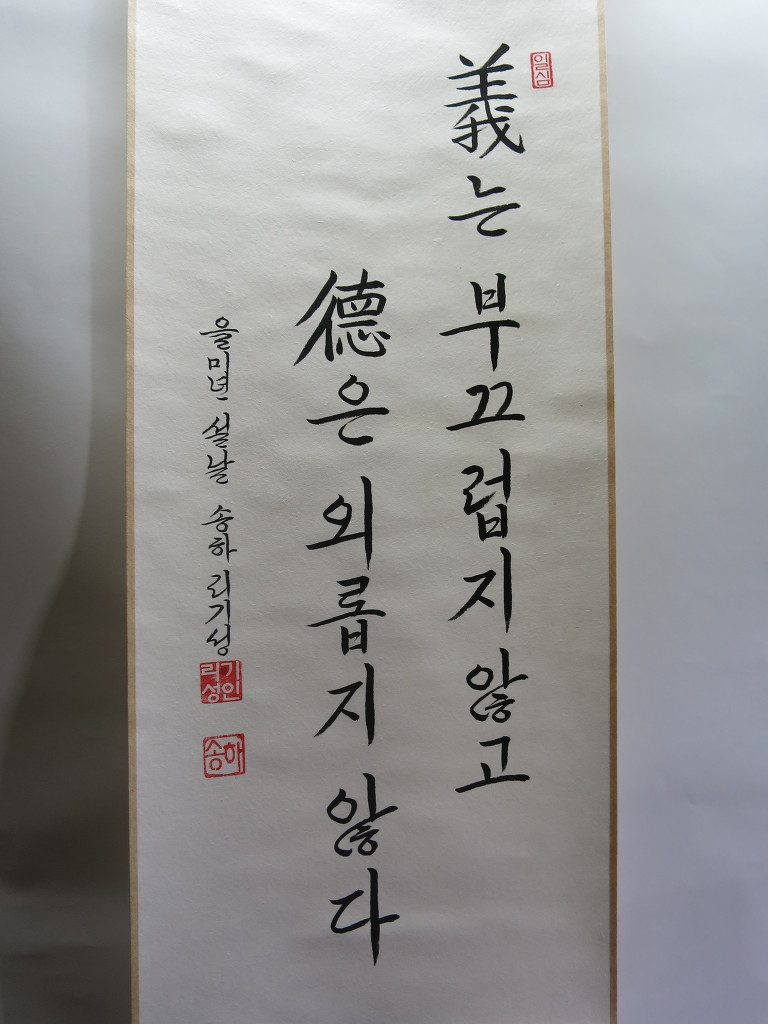 일심
義는 부끄럽지 않고
德은 외롭지 않다
을미년 설날 송하 리기성
리기성인
송하